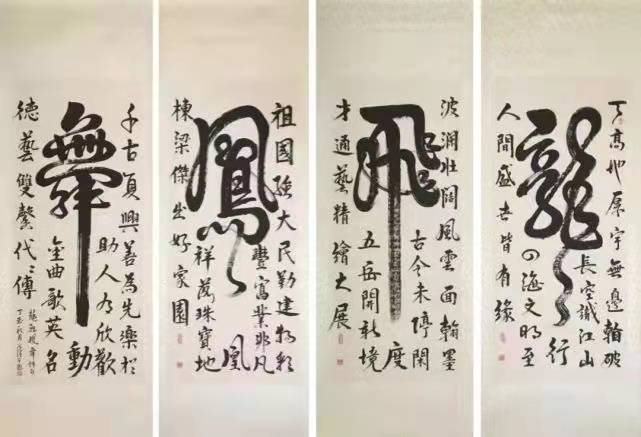 龍
天高地厚宇無邊翰破
長空識江山
行
四海文明至
人間盛世皆有緣
飛
波瀾壯闊風雲面翰墨
古今未停閑
度
五岳開新境
才通藝精繪大展
鳳
祖國強大民勤建物
豐富業非凡
凰
祥落珠寶地
棟梁傑出好家園
舞
千古夏興善為先樂於
助人為欣歡
動
金曲歌英名
德藝雙馨代々傳
龍飛鳳舞詩句
丁酉秋月